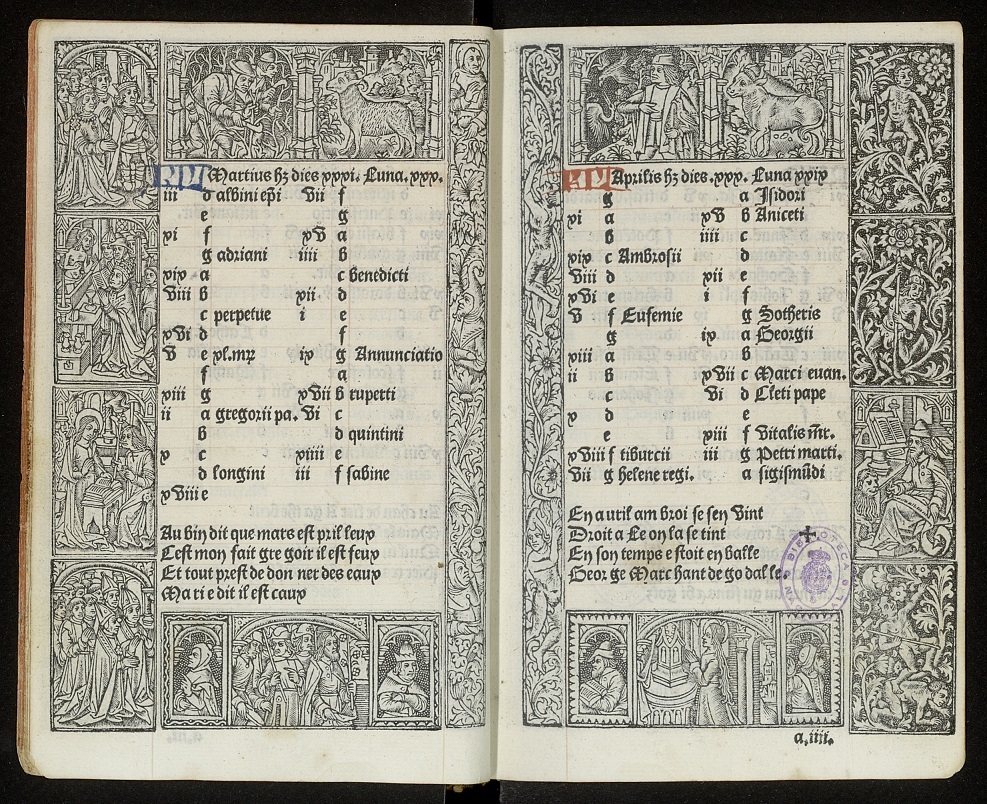 KL Martius hz dies xxxi. Luna. xxx.
iii d albini epi
e
xi f
g adriani
xix a
viii b
c perpetue
xvi d
v e xl. mr
f
xiii g
ii a gregorii pa.
b
x c
d longini
xviii e
vii f
g
xv a
iiii b
c benedicti
xii d
i e
f
ix g Annunciatio
a
xvii b ruperti
vi c
d quintini
xiiii e
iii f sabine
Au bin dit que mars est pril leux
Cest mon fait gre goir il est feux
Et tout prest de don ner des eaux
Ma ri e dit il est caux
KL Aprilis hz dies. xxx. Luna xxix
g
xi a
b
xix c Ambrosii
viii d
xvi e
v f Eufemie
g
xiii a
ii b
c
x d
e
xviii f tiburcii
vii g helene regi.
a Isidori
xv b Aniceti
iiii c
d
xii e
i f
g Sotheris
ix a Georgii
b
xvii c Marci euan.
vi d Cleti pape
e
xiiii f vitalis mr.
iii g Petri marti.
a sigismūdi
En auril am broi se sen vint
Droit a Le on la se tint
En son temps e stoit en balle
Geor ge Marc hant de go dal le.
a.iiii.
BIBLIOTECA